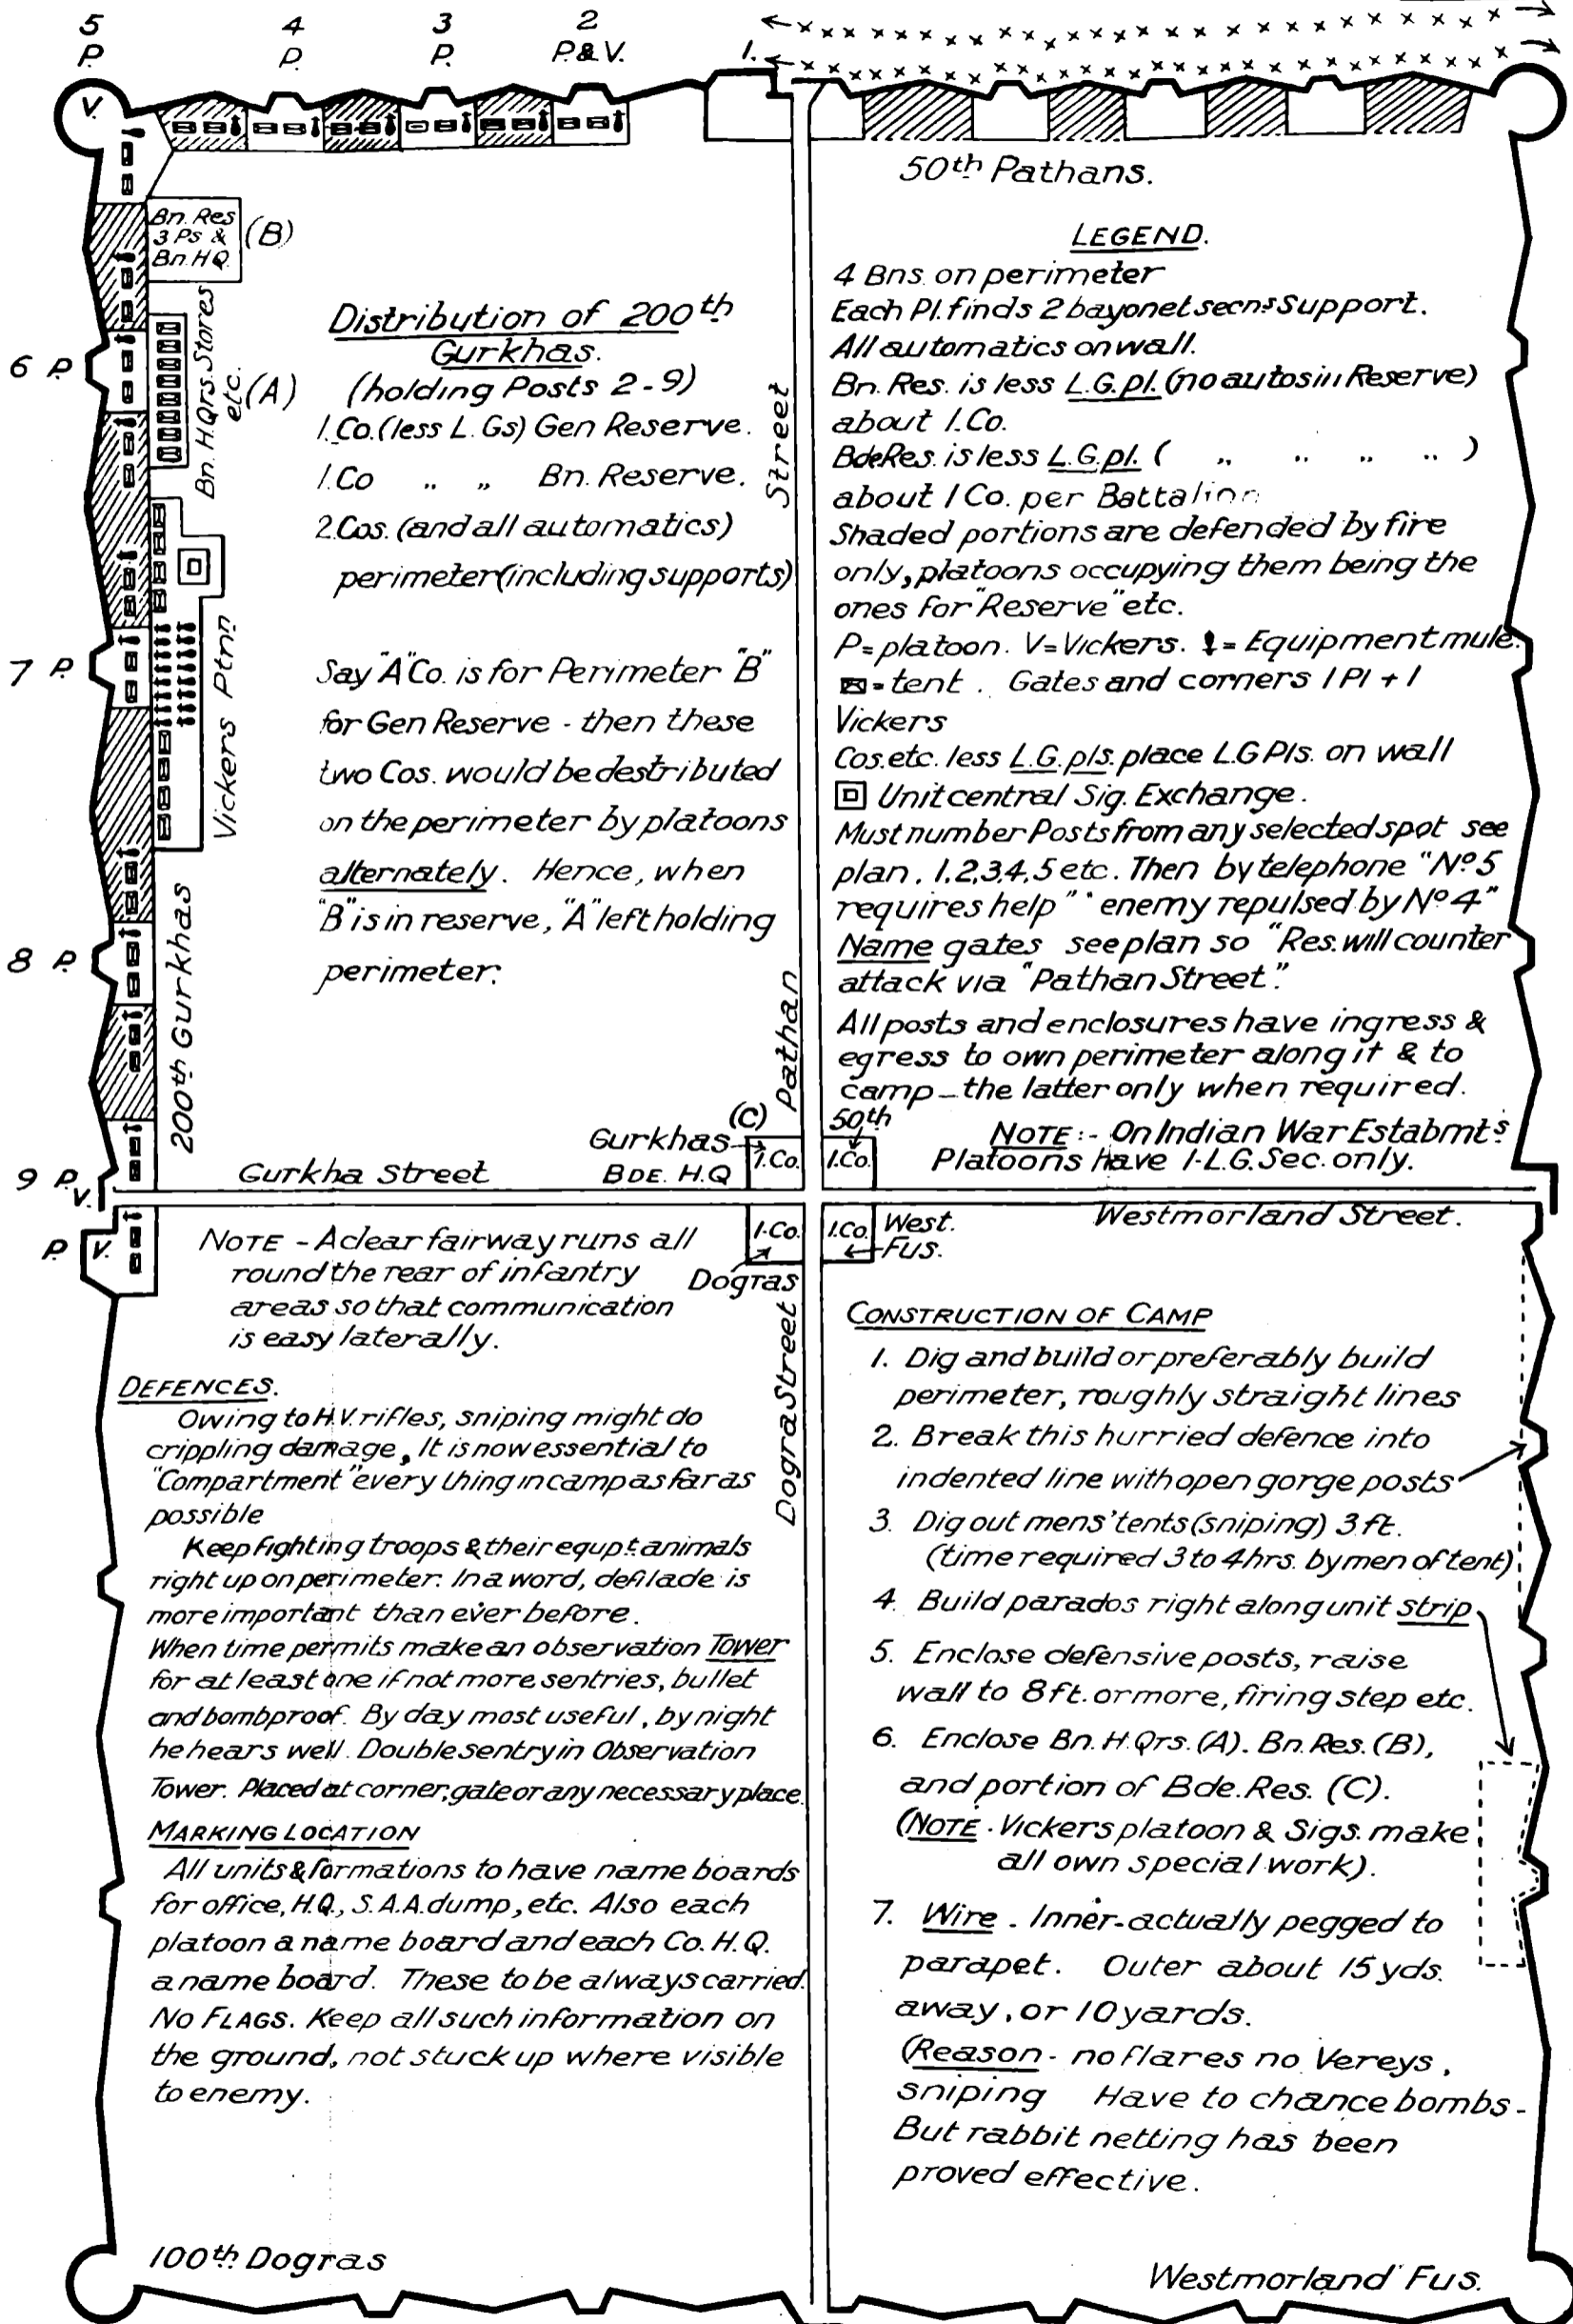 5 4 3 2
P. P. P. P.& V. 1.
V.
Bn. Res
3 Ps &
Bn. HQ.
(B)
Bn. H.Qrs. Stores
etc.
(A)
6 P.
7 P.
Vickers Ptnn
8 P.
200th Gurkhas
9 P.
V.
P.
V.
Distribution of 200th
Gurkhas.
(holding Posts 2-9)
1.Co.(less L.Gs) Gen Reserve.
1.Co „ „ Bn. Reserve.
2.Cos. (and all automatics)
perimeter(including supports)
Say "A"Co. is for Perimeter "B"
for Gen Reserve - then these
two Cos. would be destributed
on the perimeter by platoons
alternately. Hence, when
"B" is in reserve, "A" left holding
perimeter.
Pathan Street
50th Pathans.
LEGEND.
4 Bns. on perimeter
Each Pl. finds 2 bayonet secns Support.
All automatics on wall.
Bn. Res. is less L.G.pl. (no autos in Reserve)
about 1.Co.
Bde Res. is less L.G.pl. ( „ „ „ „ )
about 1 Co. per Battalion
Shaded portions are defended by fire
only, platoons occupying them being the
ones for "Reserve" etc.
P=platoon. V=Vickers. = Equipment mule.
=tent. Gates and corners 1 Pl + 1
Vickers
Cos. etc. less L.G.pls. place L.G Pls. on wall
Unit central Sig. Exchange.
Must number Posts from any selected spot see
plan. 1,2,3,4,5 etc. Then by telephone "No 5
requires help" "enemy repulsed by No 4"
Name gates see plan so "Res. will counter
attack via "Pathan Street."
All posts and enclosures have ingress &
egress to own perimeter along it & to
camp - the latter only when required.
NOTE:- On Indian War Estabmts
Platoons have 1-L.G. Sec. only.
(C)
50th
Gurkhas
1.Co. 1.Co.
Gurkha Street
BDE. H.Q
Westmorland Street.
1.Co. 1.Co.
West.
Fus.
Dogras
NOTE - A clear fairway runs all
round the rear of infantry
areas so that communication
is easy laterally.
DEFENCES.
Owing to H.V. rifles, sniping might do
crippling damage, It is now essential to
"Compartment" every thing in camp as far as
possible
Keep fighting troops & their equpt animals
right up on perimeter. In a word, defilade is
more important than ever before.
When time permits make an observation Tower
for at least one if not more sentries, bullet
and bombproof. By day most useful, by night
he hears well. Double sentry in Observation
Tower. Placed at corner, gate or any necessary place.
MARKING LOCATION
All units & formations to have name boards
for office, H.Q., S.A.A. dump, etc. Also each
platoon a name board and each Co. H.Q.
a name board. These to be always carried.
NO FLAGS. Keep all such information on
the ground, not stuck up where visible
to enemy.
100th Dogras
Dogra Street
CONSTRUCTION OF CAMP
1. Dig and build or preferably build
perimeter, roughly straight lines
2. Break this hurried defence into
indented line with open gorge posts
3. Dig out mens' tents (sniping) 3 ft.
(time required 3 to 4 hrs. by men of tent)
4. Build parados right along unit strip
5. Enclose defensive posts, raise
wall to 8 ft. or more, firing step etc.
6. Enclose Bn. H.Qrs. (A). Bn. Res. (B),
and portion of Bde. Res. (C).
(NOTE. Vickers platoon & Sigs. make
all own special work).
7. Wire - Inner-actually pegged to
parapet. Outer about 15 yds.
away, or 10 yards.
(Reason - no flares no Vereys,
sniping Have to chance bombs -
But rabbit netting has been
proved effective.
Westmorland Fus.